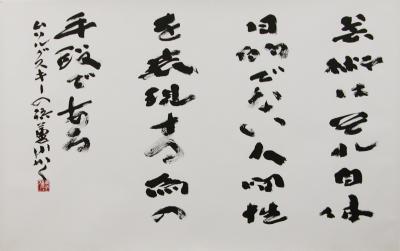 芸術はそれ自体
目的でない人間性
を表現する為の
手段である
ムソルグスキーの